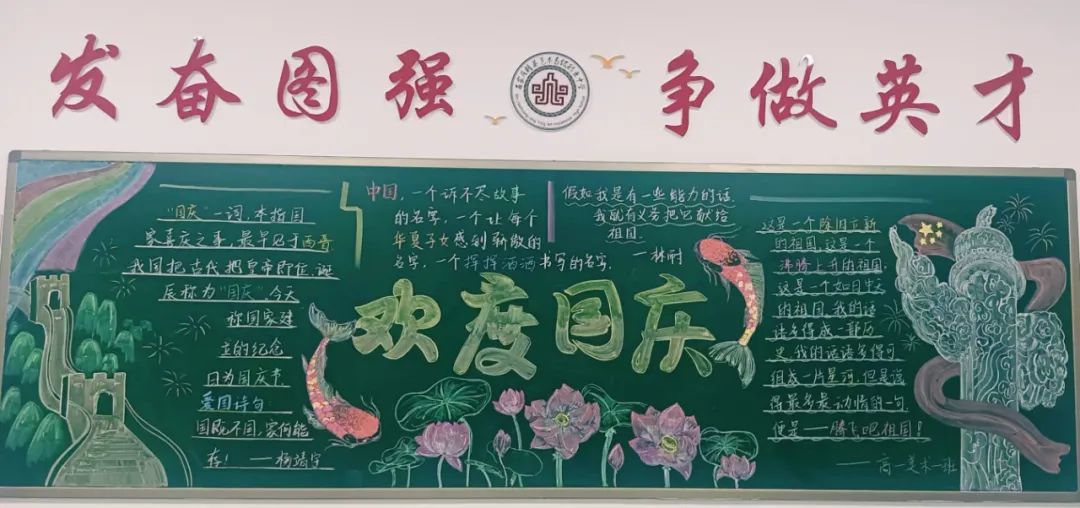 发奋图强 争做英才
“国庆”一词,本指国
家喜庆之事,最早见于西晋
我国把古代把皇帝即位、诞
辰称为“国庆”今天
称国家建
立的纪念
日为国庆节
爱国诗句:
国既不国,家何能
存! ——杨靖宇
中国,一个诉不尽故事
的名字,一个让每个
华夏子女感到骄傲的
名字,一个挥挥洒洒书写的名字.
假如我是有一些能力的话,
我就有义务把它献给
祖国.
——林耐
欢度国庆
这是一个除旧立新
的祖国,这是一个
沸腾上升的祖国
这是一个如日中天
的祖国,我的话
语多得成一部历
史,我的话语多得可
组成一片星河,但是说
得最多最动情的一句
便是——腾飞吧祖国!
——高一美术一班